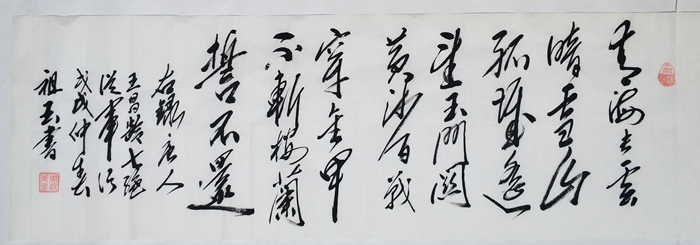 青海長雲
暗雪山
孤城遙
望玉門關
黃沙百戰
穿金甲
不斬樓蘭
誓不還
右錄唐人
王昌齡七絕
從軍行
戊戌仲春
祖玉書